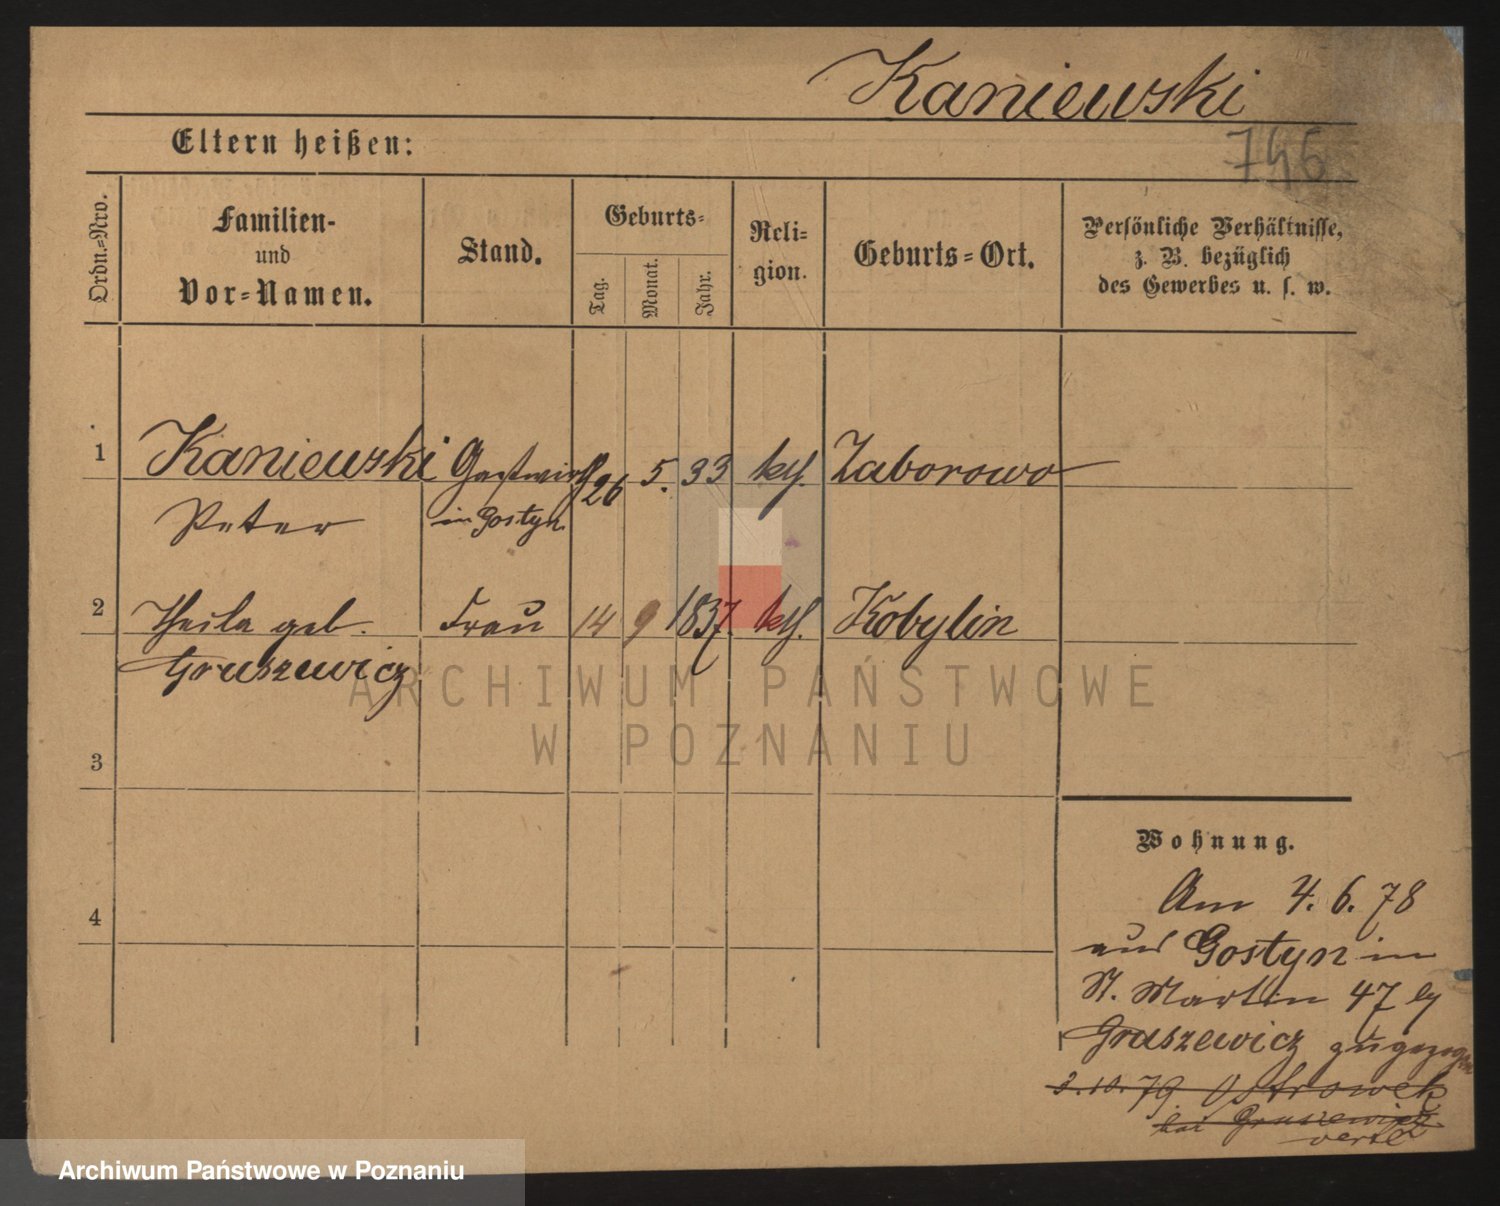 Kaniewski
746
Eltern heißen:
Ordn.=Nro.
Familien-
und
Vor=Namen.
Stand.
Geburts=
Tag.
Monat.
Jahr.
Reli=
gion.
Geburts=Ort.
Persönliche Verhältnisse,
z. B. bezüglich
des Gewerbes u. s. w.
1 Kaniewski Gastwirth 26 5. 33 kth. Zaborowo
Peter in Gostyn
2 Thecla geb. Frau 14 9 1837. kth. Kobylin
Gruszewicz
3
4
Wohnung.
Am 4. 6. 78
aus Gostyn in
St. Martin 47 by
Gruszewicz zugezogen
3. 10. 79 Ostrowek
bei Gruszewicz
verte
ARCHIWUM PAŃSTWOWE
W POZNANIU
Archiwum Państwowe w Poznaniu